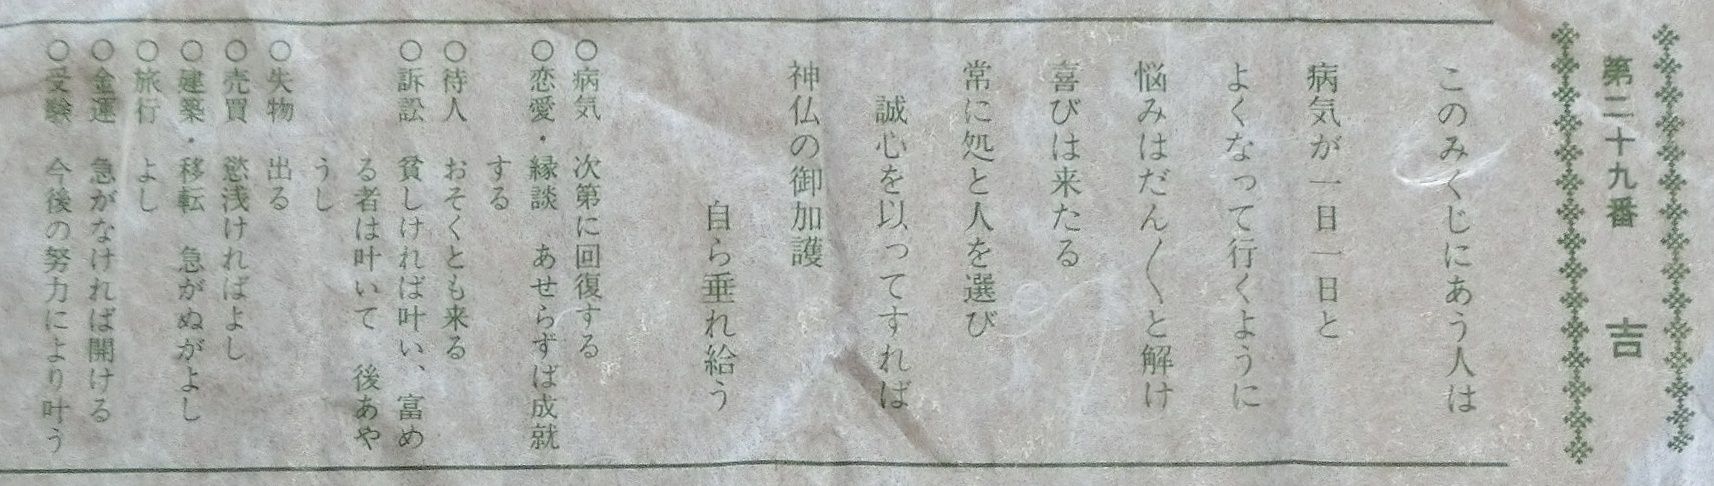 第二十九番　吉
このみくじにあう人は
病気が一日一日と
よくなって行くように
悩みはだん〱と解け
喜びは来たる
常に処と人を選び
誠心を以ってすれば
神仏の御加護
自ら垂れ給う
○病気　次第に回復する
○恋愛・縁談　あせらずば成就
する
○待人　おそくとも来る
○訴訟　貧しければ叶い、富め
る者は叶いて　後あや
うし
○失物　出る
○売買　慾浅ければよし
○建築・移転　急がぬがよし
○旅行　よし
○金運　急がなければ開ける
○受験　今後の努力により叶う